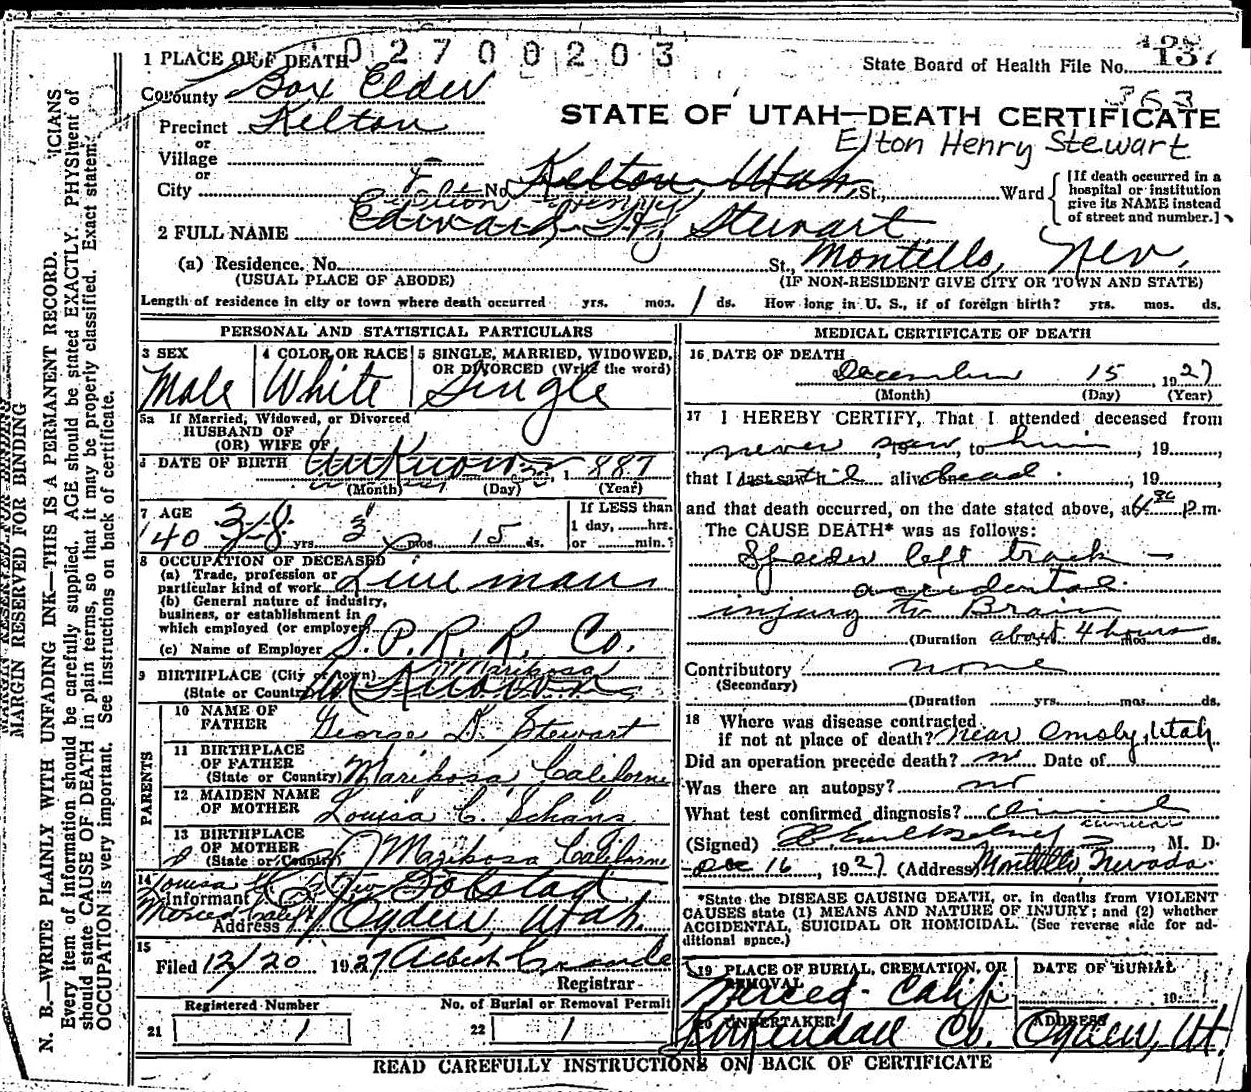 02700203
1 PLACE OF DEATH
State Board of Health File No. 137
363
County Box Elder
STATE OF UTAH—DEATH CERTIFICATE
Precinct Kelton
Elton Henry Stewart
or
Village
or
City No. Kelton, Utah St., Ward
[If death occurred in a hospital or institution give its NAME instead of street and number.]
Elton Henry
2 FULL NAME Edward Hy Stewart
(a) Residence. No. St., Montello, Nev.
(USUAL PLACE OF ABODE) (IF NON-RESIDENT GIVE CITY OR TOWN AND STATE)
Length of residence in city or town where death occurred yrs. mos. 1 ds. How long in U. S., if of foreign birth? yrs. mos. ds.
PERSONAL AND STATISTICAL PARTICULARS
3 SEX
Male
4 COLOR OR RACE
White
5 SINGLE, MARRIED, WIDOWED, OR DIVORCED (Write the word)
Single
5a If Married, Widowed, or Divorced
HUSBAND OF
(OR) WIFE OF
DATE OF BIRTH Unknown 1887
(Month) (Day) (Year)
7 AGE
40 38 yrs. 3 mos. 15 ds.
If LESS than
1 day, ........hrs.
or ........min.?
8 OCCUPATION OF DECEASED
(a) Trade, profession or
particular kind of work Lineman
(b) General nature of industry,
business, or establishment in
which employed (or employer)
(c) Name of Employer S. P. R. R. Co.
9 BIRTHPLACE (City or town) Mariposa
(State or Country) Unknown
PARENTS
10 NAME OF
FATHER George D. Stewart
11 BIRTHPLACE
OF FATHER
(State or Country) Mariposa, California
12 MAIDEN NAME
OF MOTHER Louisa C. Schans
13 BIRTHPLACE
OF MOTHER
(State or Country) Mariposa California
14
Informant Golstad
Address Ogden, Utah.
15
Filed 12/20 1927 Albert
Registrar
Registered Number
21 1
No. of Burial or Removal Permit
22 1
MEDICAL CERTIFICATE OF DEATH
16 DATE OF DEATH
December 15, 1927
(Month) (Day) (Year)
17 I HEREBY CERTIFY, That I attended deceased from
never saw, 19 to him, 19
that I last saw h alive dead, 19
and that death occurred, on the date stated above, at P.m.
The CAUSE DEATH* was as follows:
Speeder left track —
accidental
injury to Brain
(Duration about 4 hours mos. ds.
Contributory none
(Secondary)
(Duration yrs. mos. ds.
18 Where was disease contracted
if not at place of death? Near Omsby, Utah
Did an operation precede death? no Date of
Was there an autopsy? no
What test confirmed diagnosis? Clinical
clinical
(Signed) , M. D.
Dec 16, 1927 (Address) Montello, Nevada.
*State the DISEASE CAUSING DEATH, or, in deaths from VIOLENT
CAUSES state (1) MEANS AND NATURE OF INJURY; and (2) whether
ACCIDENTAL, SUICIDAL OR HOMICIDAL. (See reverse side for ad-
ditional space.)
19 PLACE OF BURIAL, CREMATION, OR
REMOVAL
Merced - Calif
DATE OF BURIAL
19
20 UNDERTAKER
Kirkendall Co.
ADDRESS
Ogden, Ut.
READ CAREFULLY INSTRUCTIONS ON BACK OF CERTIFICATE
MARGIN RESERVED FOR BINDING
N. B.—WRITE PLAINLY WITH UNFADING INK—THIS IS A PERMANENT RECORD.
Every item of information should be carefully supplied. AGE should be stated EXACTLY. PHYSICIANS
should state CAUSE OF DEATH in plain terms, so that it may be properly classified. Exact statement of
OCCUPATION is very important. See instructions on back of certificate.